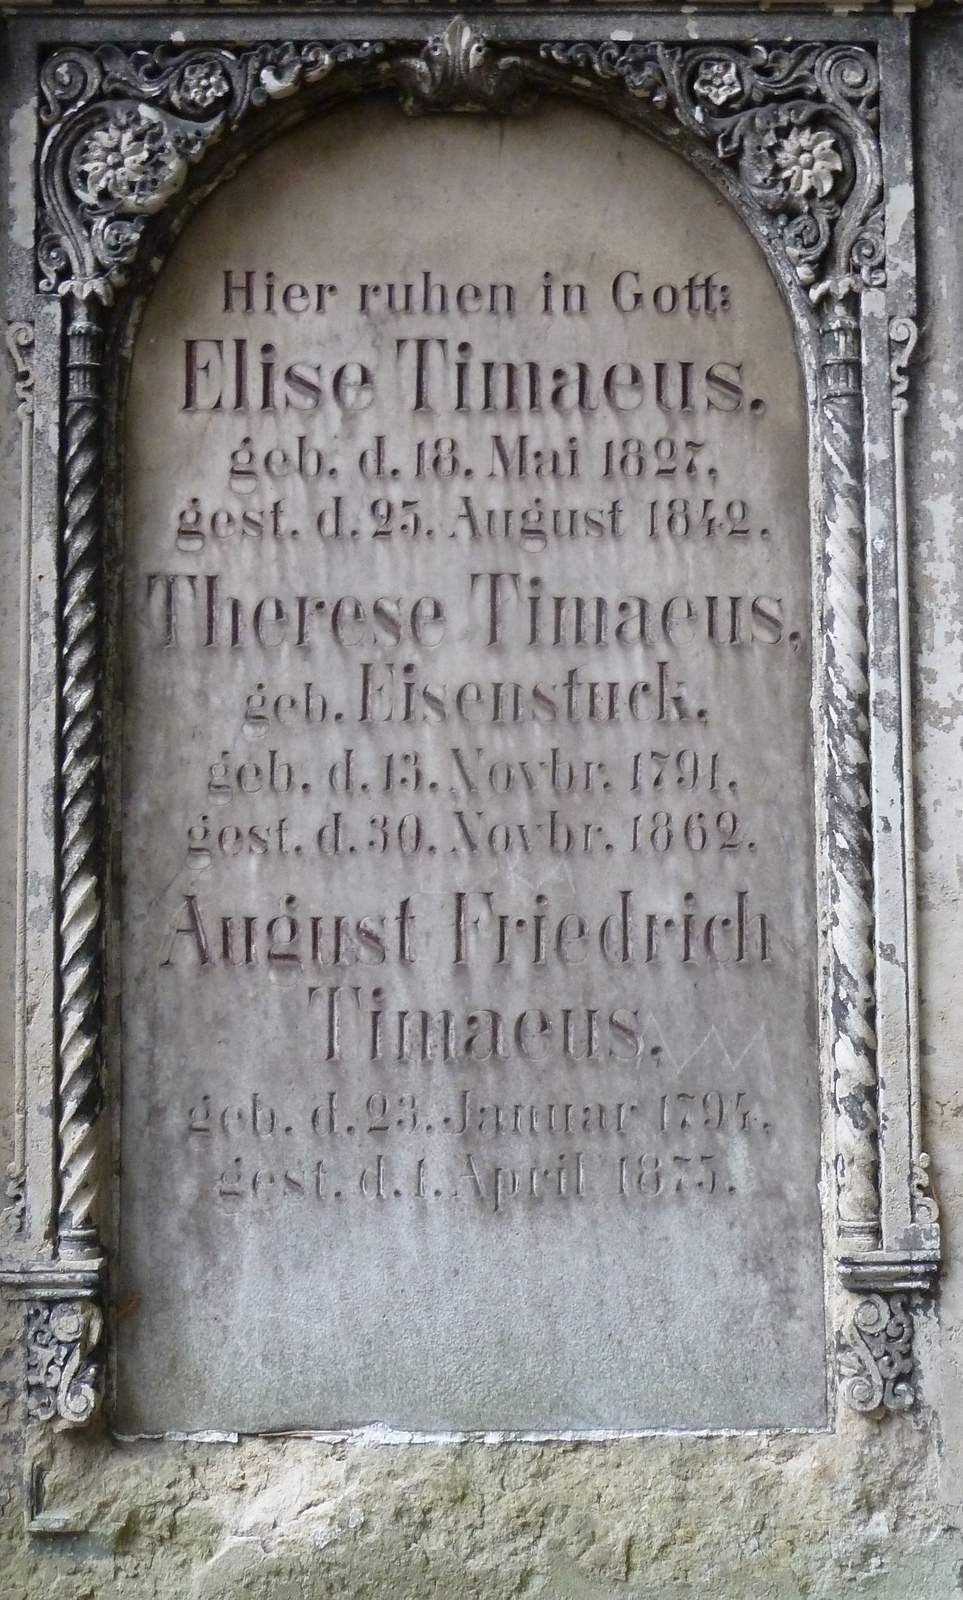 Hier ruhen in Gott:
Elise Timaeus.
geb. d. 18. Mai 1827,
gest. d. 25. August 1842.
Therese Timaeus,
geb. Eisenstuck.
geb. d. 13. Novbr. 1791,
gest. d. 30. Novbr. 1862.
August Friedrich
Timaeus.
geb. d. 23. Januar 1794.
gest. d. 1. April 1875.